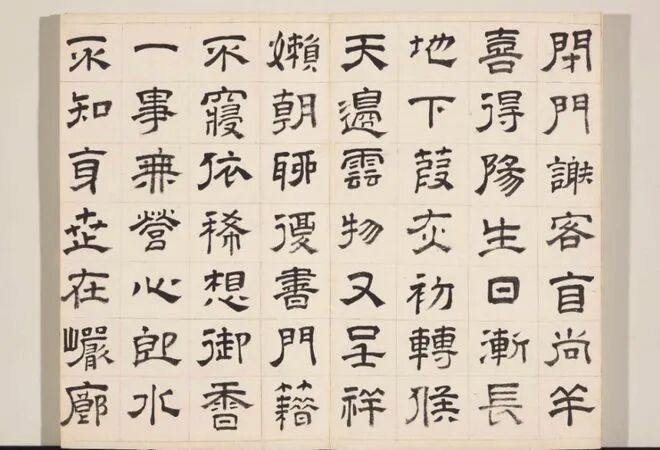 閉門謝客尚羊
喜得陽生日漸長
地下葭灰初轉候
天邊雲物又呈祥
嬾朝聊復書門籍
不寢依稀想御香
一事無營心即水
不知身世在巗廊